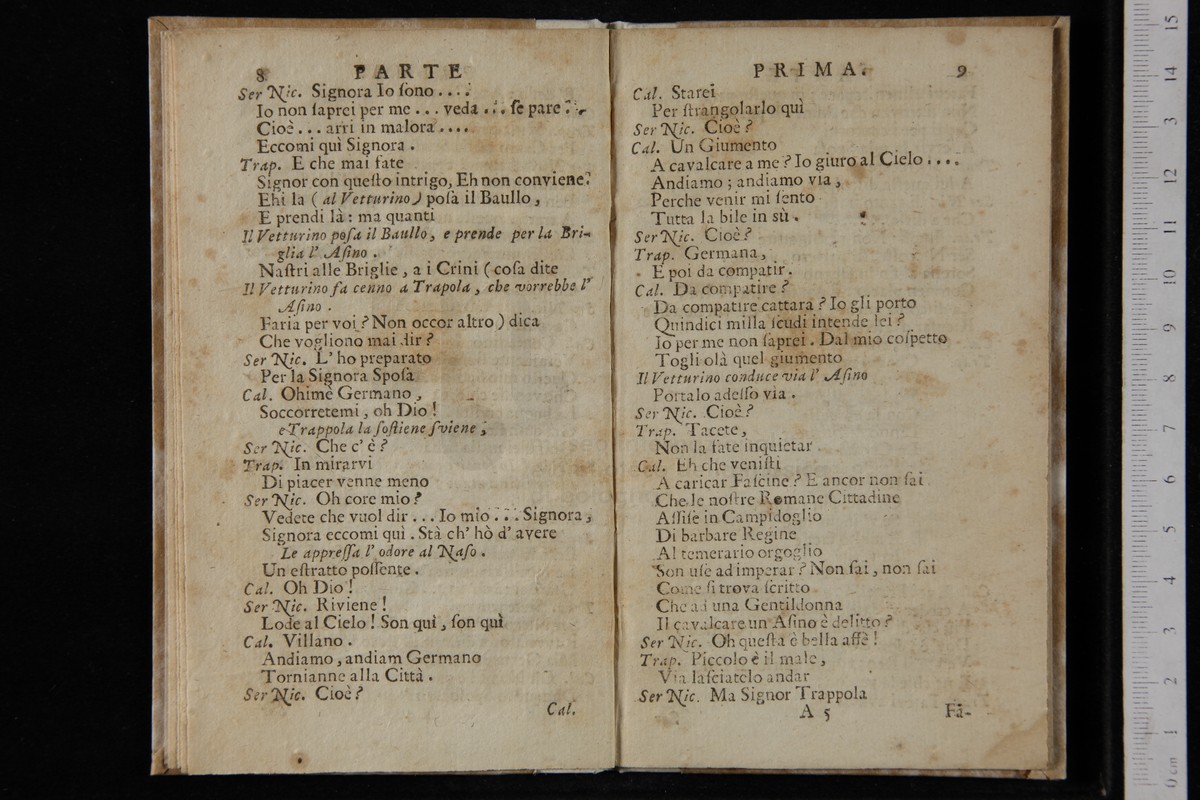 8 PARTE
Ser Nic. Signora Io ſono ....
Io non ſaprei per me ... veda ... ſe pare
Cioè ... arri in malora ....
Eccomi quì Signora .
Trap. E che mai fate
Signor con queſto intrigo, Eh non conviene.
Ehi la ( al Vetturino ) poſa il Baullo ,
E prendi là : ma quanti
Il Vetturino poſa il Baullo , e prende per la Bri-
glia l' Aſino .
Naſtri alle Briglie , a i Crini ( coſa dite
Il Vetturino fa cenno a Trapola , che vorrebbe l'
Aſino .
Faria per voi ? Non occor altro ) dica
Che vogliono mai dir ?
Ser Nic. L' ho preparato
Per la Signora Spoſa
Cal. Ohimè Germano ,
Soccorretemi , oh Dio !
e Trappola la ſoſtiene ſviene ;
Ser Nic. Che c' è ?
Trap. In mirarvi
Di piacer venne meno
Ser Nic. Oh core mio ?
Vedete che vuol dir ... Io mio ... Signora ,
Signora eccomi quì . Stà ch' hò d' avere
Le appreſſa l' odore al Naſo .
Un eſtratto poſſente .
Cal. Oh Dio !
Ser Nic. Riviene !
Lode al Cielo ! Son quì , ſon quì
Cal. Villano .
Andiamo , andiam Germano
Tornianne alla Città .
Ser Nic. Cioè ?
Cal.
PRIMA. 9
Cal. Starei
Per ſtrangolarlo quì
Ser Nic. Cioè ?
Cal. Un Giumento
A cavalcare a me ? Io giuro al Cielo ....
Andiamo ; andiamo via ,
Perche venir mi ſento
Tutta la bile in sù .
Ser Nic. Cioè ?
Trap. Germana ,
E poi da compatir .
Cal. Da compatire ?
Da compatire cattara ? Io gli porto
Quindici milla ſcudi intende lei ?
Io per me non ſaprei . Dal mio coſpetto
Togli olà quel giumento
Il Vetturino conduce via l' Aſino
Portalo adeſſo via .
Ser Nic. Cioè ?
Trap. Tacete ,
Non la fate inquietar
Cal. Eh che veniſti
A caricar Faſcine ? E ancor non ſai
Che le noſtre Romane Cittadine
Aſſiſe in Campidoglio
Di barbare Regine
Al temerario orgoglio
Son uſe ad imperar ? Non ſai , non ſai
Come ſi trova ſcritto
Che ad una Gentildonna
Il cavalcare un Aſino è delitto ?
Ser Nic. Oh queſta è bella affè !
Trap. Piccolo è il male ,
Via laſciatelo andar
Ser Nic. Ma Signor Trappola
A 5 Fà-